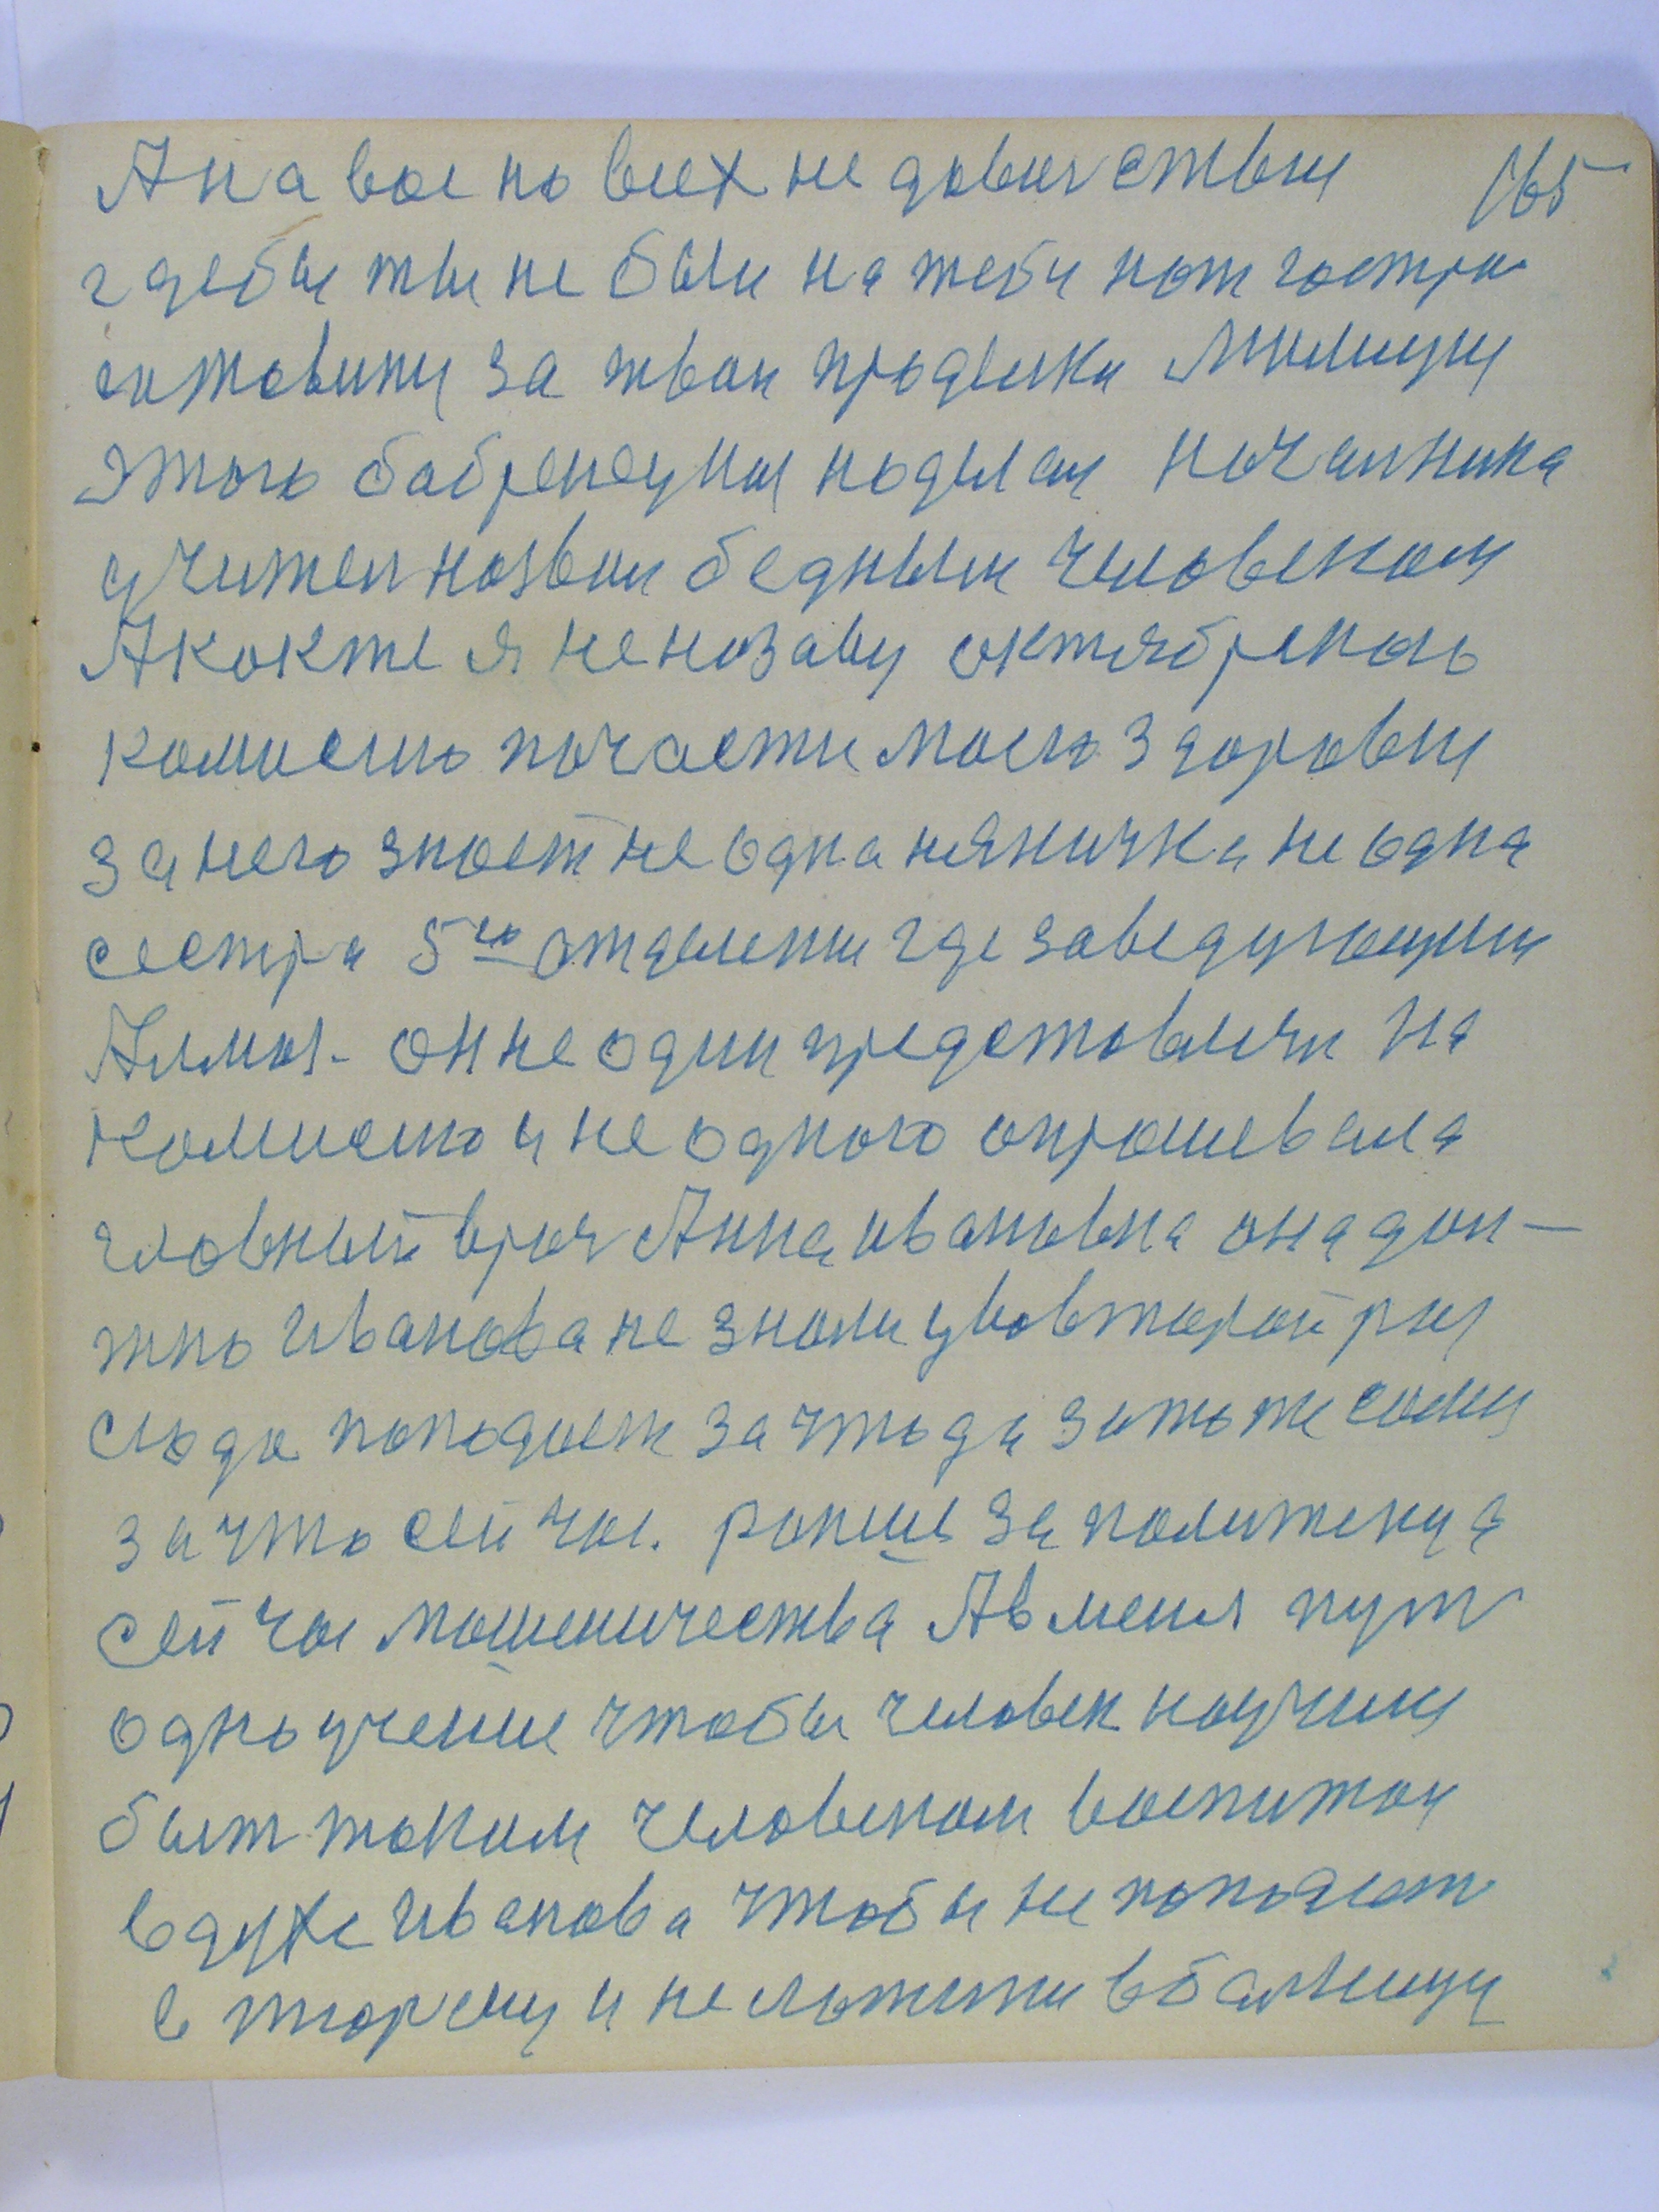 А на вас по всех не 165
где бы ты не были на тебя нож гостри
за твои проделки Милицию
этого бобренецкии поделам начальника
учител назвал бедным человеком
А кокже я не назаву октябреного
комисию по части моего здоровья
за него знает не одна няничка не одна
сестра 5го отделени где заведующии
он не один представлял на
комисию и не одного опрашевала
главный врач Анна ивановна она дол-
жно Иванова не знали уж второй раз
сюда попадает за что да за то же самы
за что сей час. раньше за политенца
сей час мошеничества А в меня пут
одно учение чтобы человек научил
быт таким человеком воспитан
в духе Иванова чтобы не попадат
в тюрему и не ложити в балницу